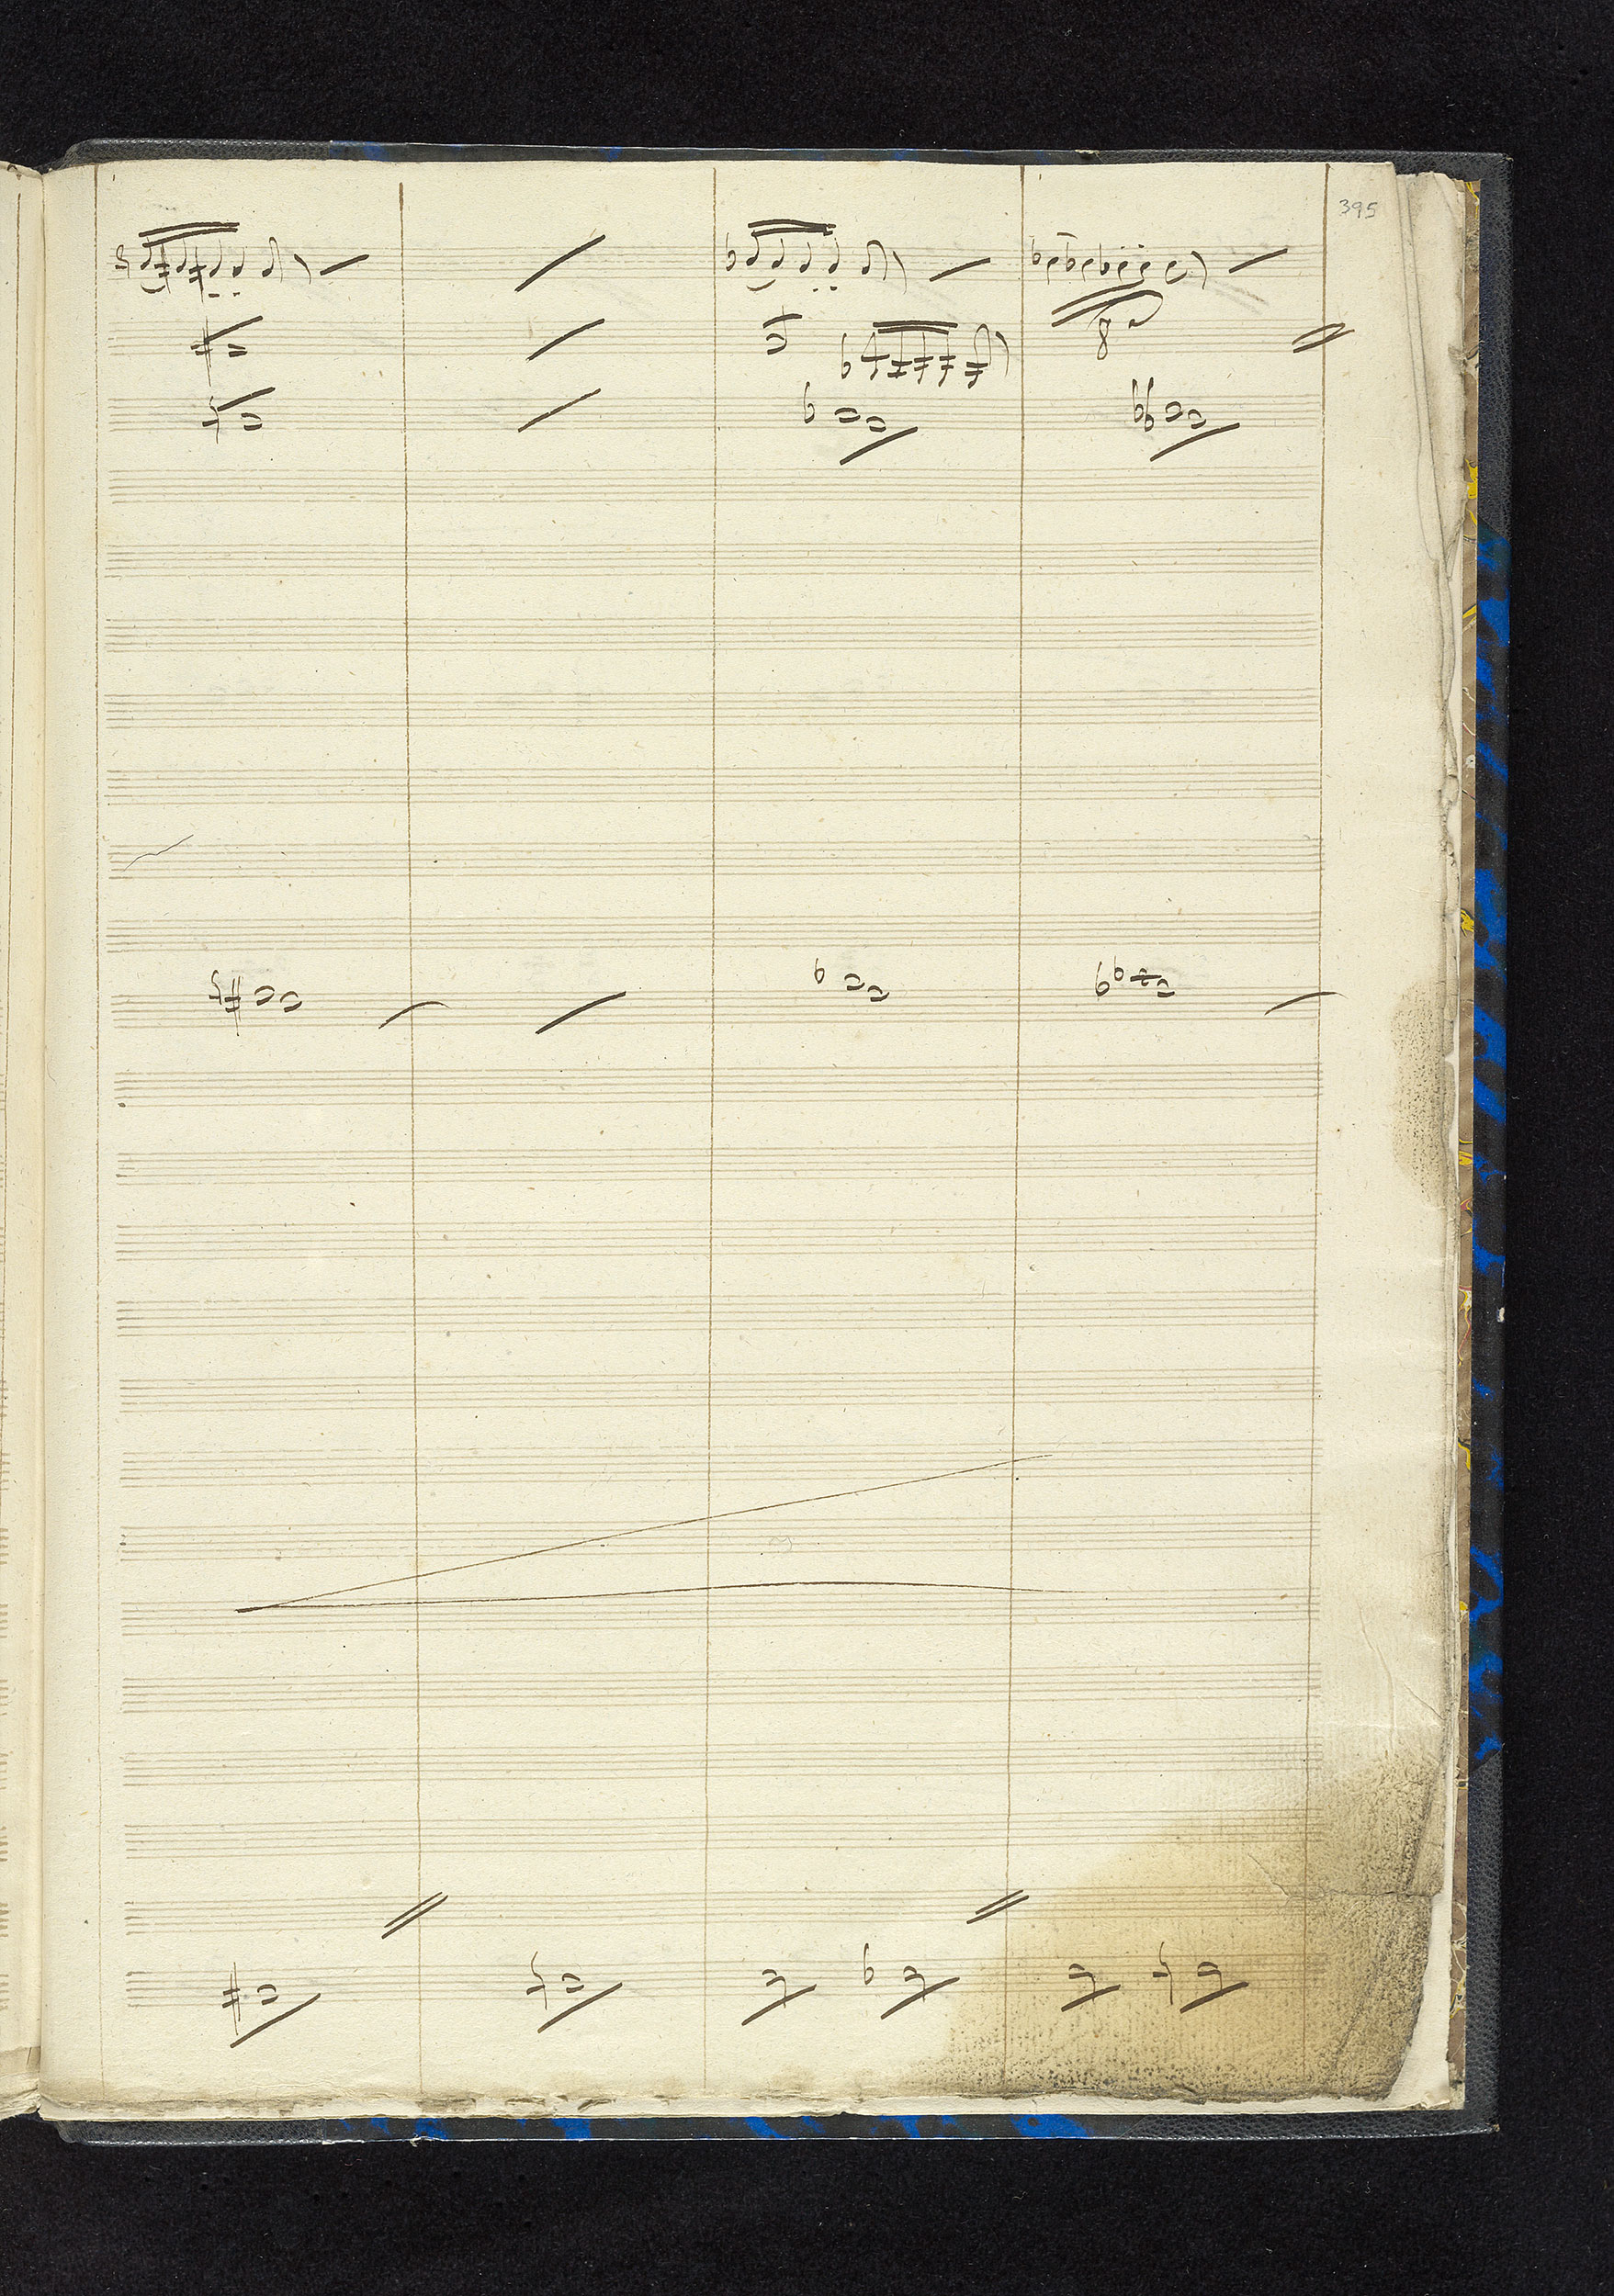 395
8